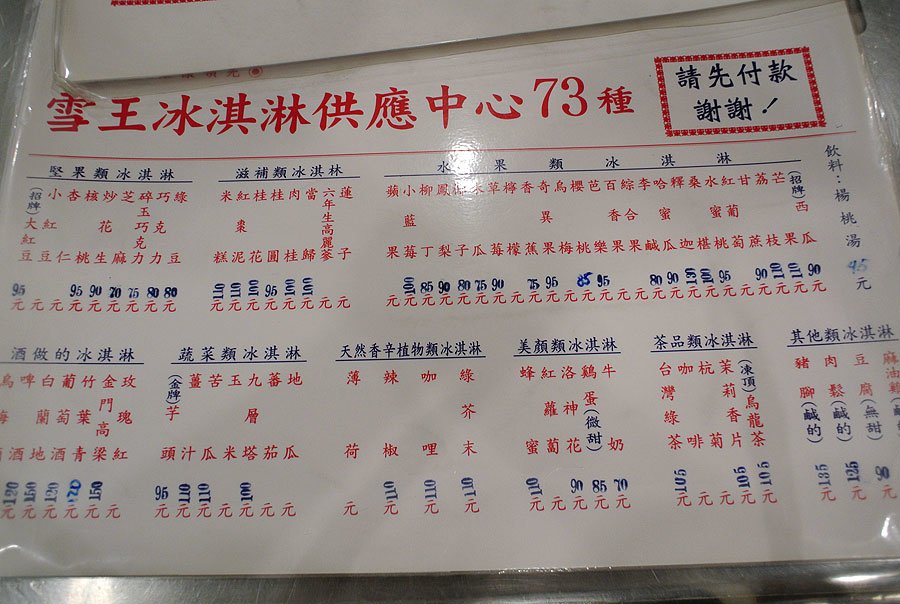 雪王冰淇淋供應中心73種
請先付款
謝謝！
飲料：楊桃湯 95元
堅果類冰淇淋
(招牌)大紅豆 95元
小紅豆 元
杏仁 元
核桃 95元
炒花生 90元
芝麻 70元
碎玉巧克力 75元
巧克力 80元
綠豆 80元
滋補類冰淇林
米糕 110元
紅棗泥 110元
桂花 100元
桂圓 95元
肉桂 100元
當歸 100元
六年生高麗蔘 元
蓮子 元
水果類冰淇淋
蘋果 元
小藍莓 100元
柳丁 85元
鳳梨 90元
子 80元
木瓜 75元
草莓 90元
檸檬 元
香蕉 75元
奇異果 95元
烏梅 元
櫻桃 85元
芭樂 95元
百香果 元
綜合果 元
李鹹 80元
哈蜜瓜 90元
釋迦 110元
桑椹 100元
水蜜桃 95元
紅葡萄 元
甘蔗 90元
荔枝 110元
芒果 110元
(招牌)西瓜 90元
酒做的冰淇淋
烏梅酒 120元
啤酒 150元
白蘭地 120元
葡萄酒 元
竹葉青 150元
金門高梁 元
玫瑰紅 元
蔬菜類冰淇淋
(金牌)芋頭 95元
薑汁 110元
苦瓜 110元
玉米 元
九層塔 100元
番茄 元
地瓜 元
天然香辛植物類冰淇淋
薄荷 元
辣椒 110元
咖哩 110元
綠芥末 110元
美顏類冰淇淋
蜂蜜 110元
紅蘿蔔 元
洛神花 90元
鷄蛋(微甜) 85元
牛奶 70元
茶品類冰淇淋
台灣綠茶 105元
咖啡 元
杭菊 元
茉莉香片 105元
(凍頂)烏龍茶 105元
其他類冰淇淋
豬腳(鹹的) 135元
肉鬆(鹹的) 125元
豆腐(無甜) 90元
麻油雞 元